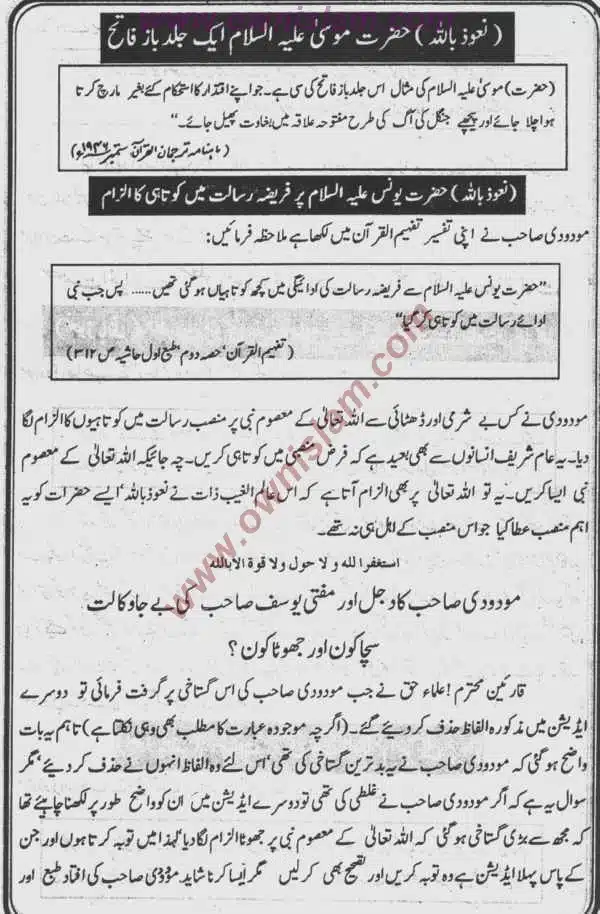 www.ownislam.com
(نعوذ باللہ) حضرت موسیٰ علیہ السلام ایک جلد باز فاتح
(حضرت) موسیٰ علیہ السلام کی مثال اس جلد باز فاتح کی سی ہے۔ جو اپنے اقتدار کا استحکام کئے بغیر مارچ کرتا
ہوا چلا جائے اور پیچھے جنگل کی آگ کی طرح مفتوحہ علاقہ میں بغاوت پھیل جائے۔"
(ماہنامہ ترجمان القرآن ستمبر ۱۹۴۶ء)
(نعوذ باللہ) حضرت یونس علیہ السلام پر فریضہ رسالت میں کوتاہی کا الزام
مودودی صاحب نے اپنی تفسیر تفہیم القرآن میں لکھا ہے ملاحظہ فرمائیں:
"حضرت یونس علیہ السلام سے فریضہ رسالت کی ادائیگی میں کچھ کوتاہیاں ہو گئی تھیں...... پس جب نبی
ادائے رسالت میں کوتاہی کر گیا"
(تفہیم القرآن' حصہ دوم' طبع اول حاشیہ ص ۳۱۲)
مودودی نے کس بے شرمی اور ڈھٹائی سے اللہ تعالیٰ کے معصوم نبی پر منصب رسالت میں کوتاہیوں کا الزام لگا
دیا۔ یہ عام شریف انسانوں سے بھی بعید ہے کہ فرض منصبی میں کوتاہی کریں۔ چہ جائیکہ اللہ تعالیٰ کے معصوم
نبی ایسا کریں۔ یہ تو اللہ تعالیٰ پر بھی الزام آتا ہے کہ اس عالم الغیب ذات نے نعوذ باللہ' ایسے حضرات کو یہ
اہم منصب عطا کیا جو اس منصب کے اہل ہی نہ تھے۔
استغفراللہ ولا حول ولا قوۃ الا باللہ
مودودی صاحب کا دجل اور مفتی یوسف صاحب کی بے جا وکالت
سچا کون اور جھوٹا کون؟
قارئین محترم! علماء حق نے جب مودودی صاحب کی اس گستاخی پر گرفت فرمائی تو دوسرے
ایڈیشن میں مذکورہ الفاظ حذف کر دیئے گئے۔ (اگرچہ موجودہ عبارت کا مطلب بھی وہی نکلتا ہے) تاہم یہ بات
واضح ہو گئی کہ مودودی صاحب نے یہ بدترین گستاخی کی تھی' اس لئے وہ الفاظ انہوں نے حذف کر دیئے' مگر
سوال یہ ہے کہ اگر مودودی صاحب نے غلطی کی تھی تو دوسرے ایڈیشن میں ان کو واضح طور پر لکھنا چاہیئے تھا
کہ مجھ سے بڑی گستاخی ہو گئی کہ اللہ تعالیٰ کے معصوم نبی پر جھوٹا الزام لگا دیا' لہٰذا میں توبہ کرتا ہوں اور جن
کے پاس پہلا ایڈیشن ہے وہ توبہ کریں اور تصحیح بھی کر لیں مگر ایسا کرنا شاید مودودی صاحب کی افتاد طبع اور
www.ownislam.com